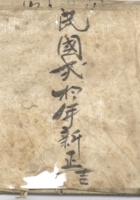 民國弍拾年新正吉